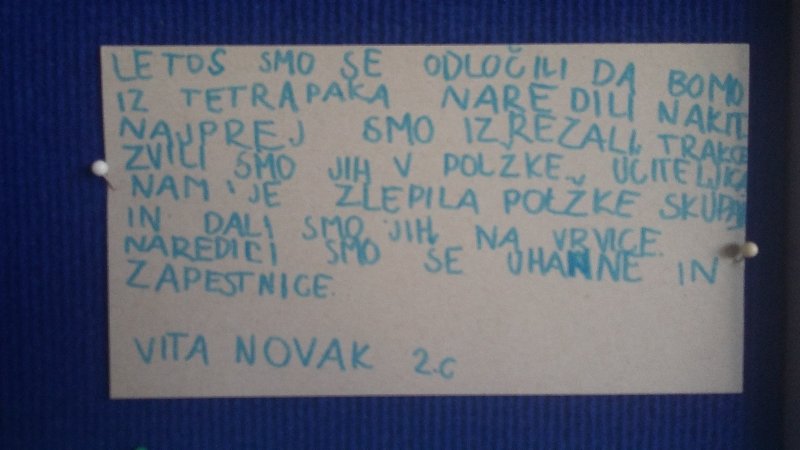 LETOS SMO SE ODLOČILI DA BOMO
IZ TETRAPAKA NAREDILI NAKIT.
NAJPREJ SMO IZREZALI TRAKCE
ZVILI SMO JIH V POLŽKE. UČITELJICA
NAM JE ZLEPILA POLŽKE SKUPAJ
IN DALI SMO JIH NA VRVICE.
NAREDILI SMO ŠE UHANNE IN
ZAPESTNICE.
VITA NOVAK 2.C